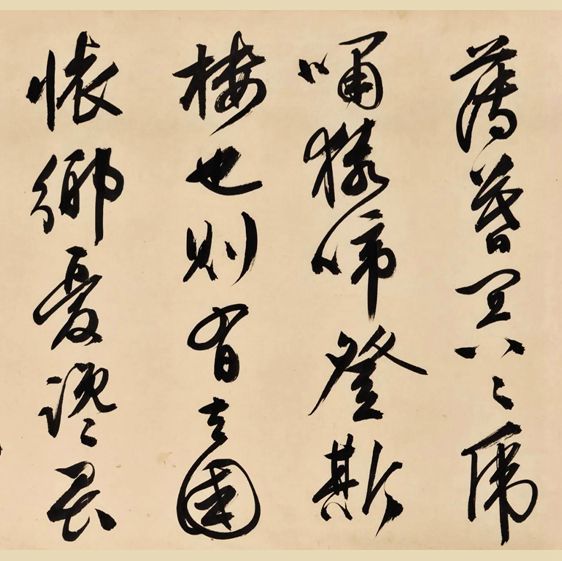 薄暮冥冥虎
嘯猿啼登斯
樓也則有去國
懷鄉憂讒畏